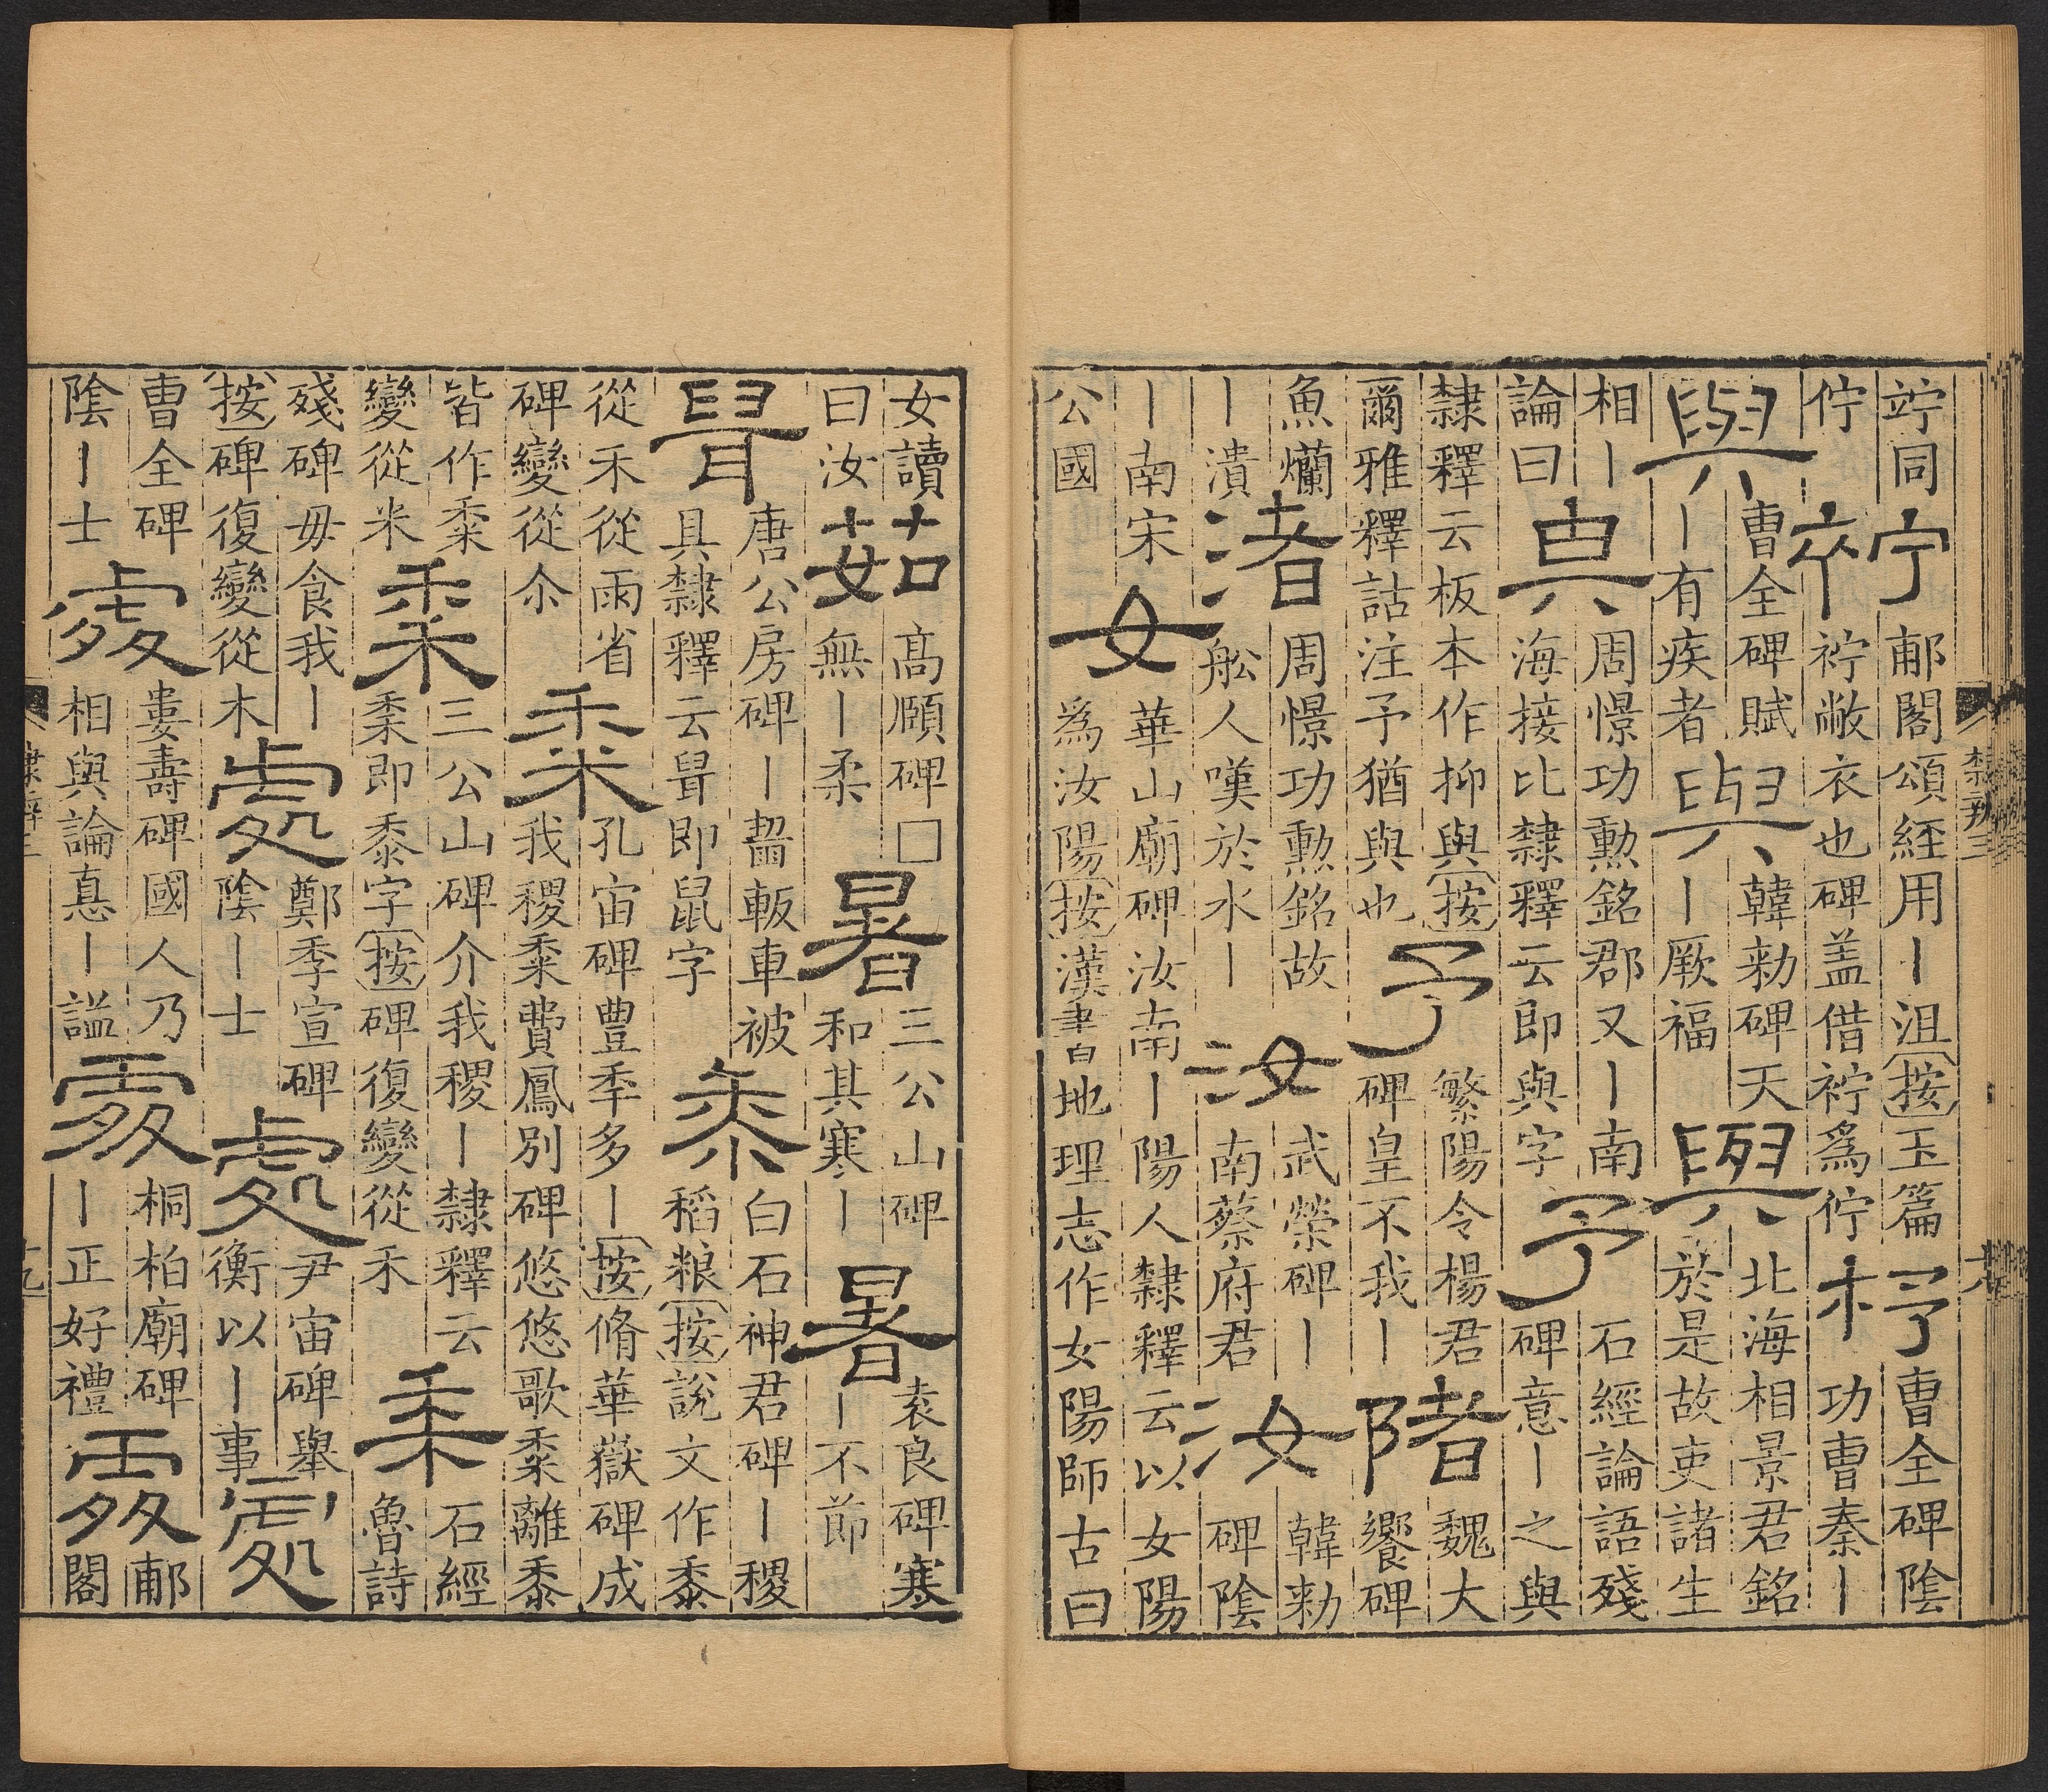 竚同
佇
䘢
郙閣頌経用丨沮按玉篇
䘢敝衣也碑盖借䘢爲佇
杼
曹全碑陰
功曹秦丨
與
曹全碑賦
丨有疾者
與
韓勑碑天
丨厥福
與
北海相景君銘
於是故吏諸生
相丨
論曰
周憬功勲銘郡又丨南
海接比隸釋云即與字
予
石經論語殘
碑意丨之與
隸釋云板本作抑與按
爾雅釋詁注予猶與也
予
繁陽令楊君
碑皇不我丨
陼
魏大
饗碑
魚爤
丨潰
渚
周憬功勲銘故
舩人嘆於水丨
汝
武榮碑丨
南蔡府君
汝
韓勑
碑陰
丨南宋
公國
女
華山廟碑汝南丨陽人隸釋云以女陽
爲汝陽按漢書地理志作女陽師古曰
隸辨三
女讀
曰汝
茹
高頤碑□
無丨柔
暑
三公山碑
和其寒丨
暑
袁良碑寒
丨不節
𦔮
唐公房碑丨齧䡊車被
具隸釋云𦔮即鼠字
黍
白石神君碑丨稷
稻粮按說文作黍
從禾從雨省
碑變從氺
黍
孔宙碑豊年多丨按脩華嶽碑成
我稷黍費鳳別碑悠悠歌黍離黍
皆作黍
變從米
䅗
三公山碑介我稷丨隸釋云
䅗即黍字按碑復變從禾
黍
石經
魯詩
殘碑毋食我丨
按碑復變從木
處
鄭季宣碑
陰丨士
處
尹宙碑舉
衡以丨事
處
曹全碑
陰丨士
處
婁壽碑國人乃
相與論悳丨謚
處
桐柏廟碑
丨正好禮
處
郙
閣
隸辨三
十九